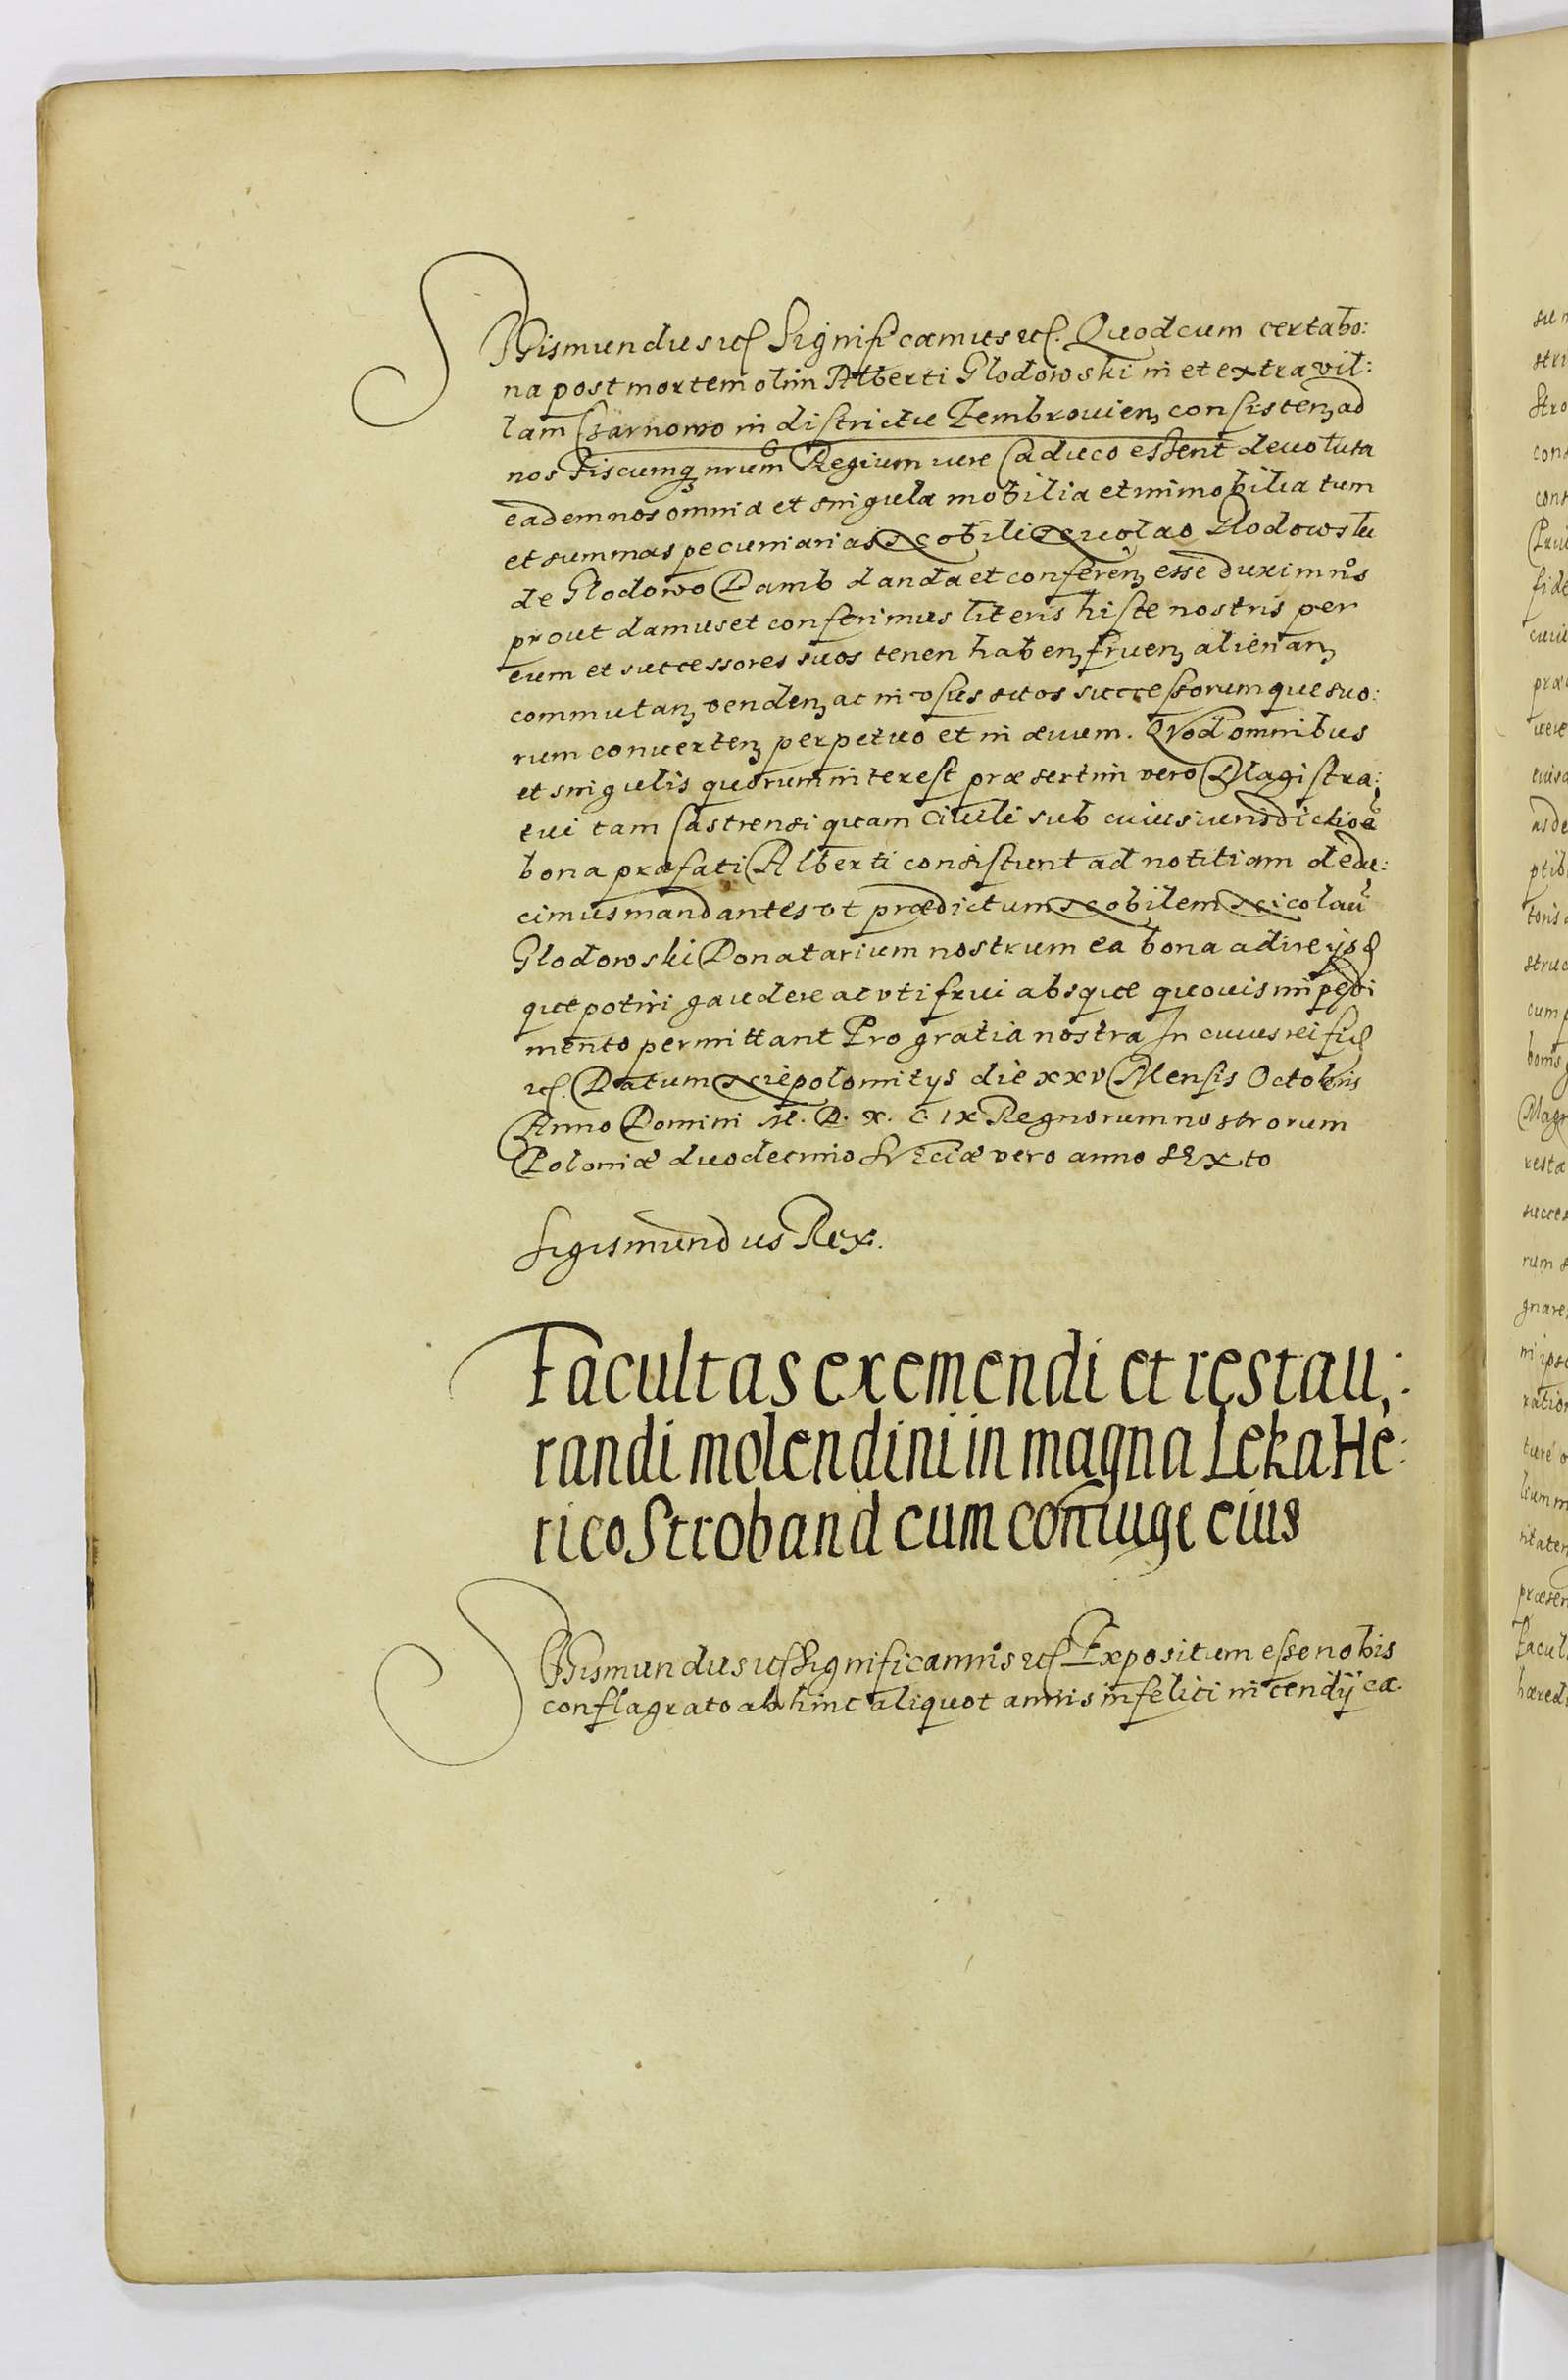 Sigismundus etc. Significamus etc. Quod cum certa bo:
na post mortem olim Alberti Glodowski in et extra vil:
lam Czarnowo in districtu Zembrouien consisten ad
nos Fiscumq nrum Regium iure Caduco essent deuoluta
eadem nos omnia et singula mobilia et immobilia tum
et summas pecuniarias Nobili Nicolao Glodowski
de Glodowo Damb danda et conferen esse duximus
prout damus et conferimus literis hisce nostris per
eum et successores suos tenen haben fruen alienan
commutan venden ac in vsus suos successorumque suo:
rum conuerten perpetuo et in aeuum. Quod omnibus
et singulis quorum interest praesertim vero Magistra:
tui tam Castrensi quam Ciuili sub cuius iurisdictioe
bona praefati Alberti consistunt ad notitiam dedu:
cimus mandantes vt praedictum Nobilem Nicolau
Glodowski Donatarium nostrum ea bona adire ijsd
que potiri gaudere ac vti frui absque quouis impedi
mento permittant Pro gratia nostra In cuius rei fid
etc. Datum Niepolomitys die xxv Mensis Octobris
Anno Domini M. D. x. C. IX Regnorum nostrorum
Poloniae duodecimo Sveciae vero anno sexto
Sigismundus Rex.
Facultas exemendi et restau:
randi molendini in magna Leka He:
rico Stroband cum coniuge eius
Sigismundus etc Significamus etc Expositum esse nobis
conflagrato ab hinc aliquot annis infelici incendij ca